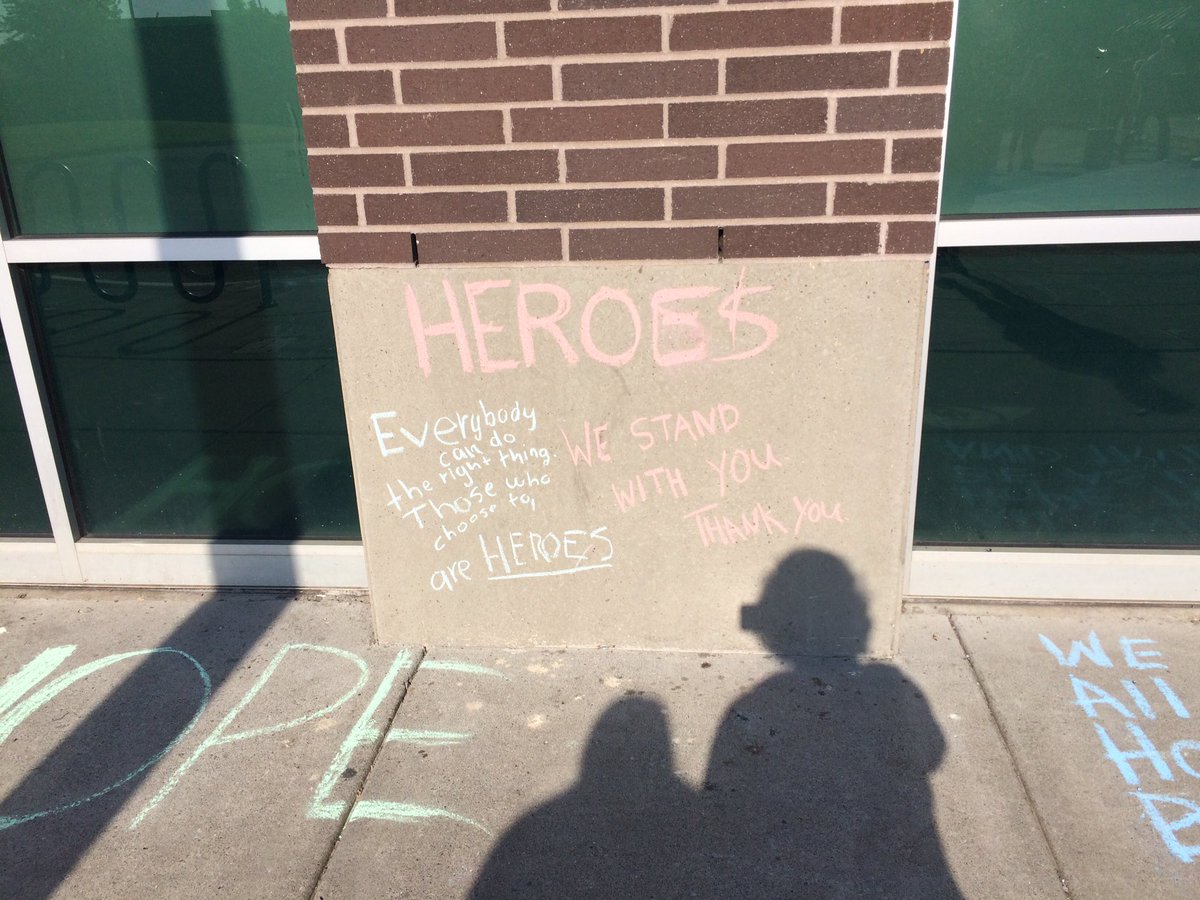 HEROES
Everybody
can do
the right thing.
Those who
choose to,
are HEROES
WE STAND
WITH YOU.
THANK YOU.
OPE
WE
All